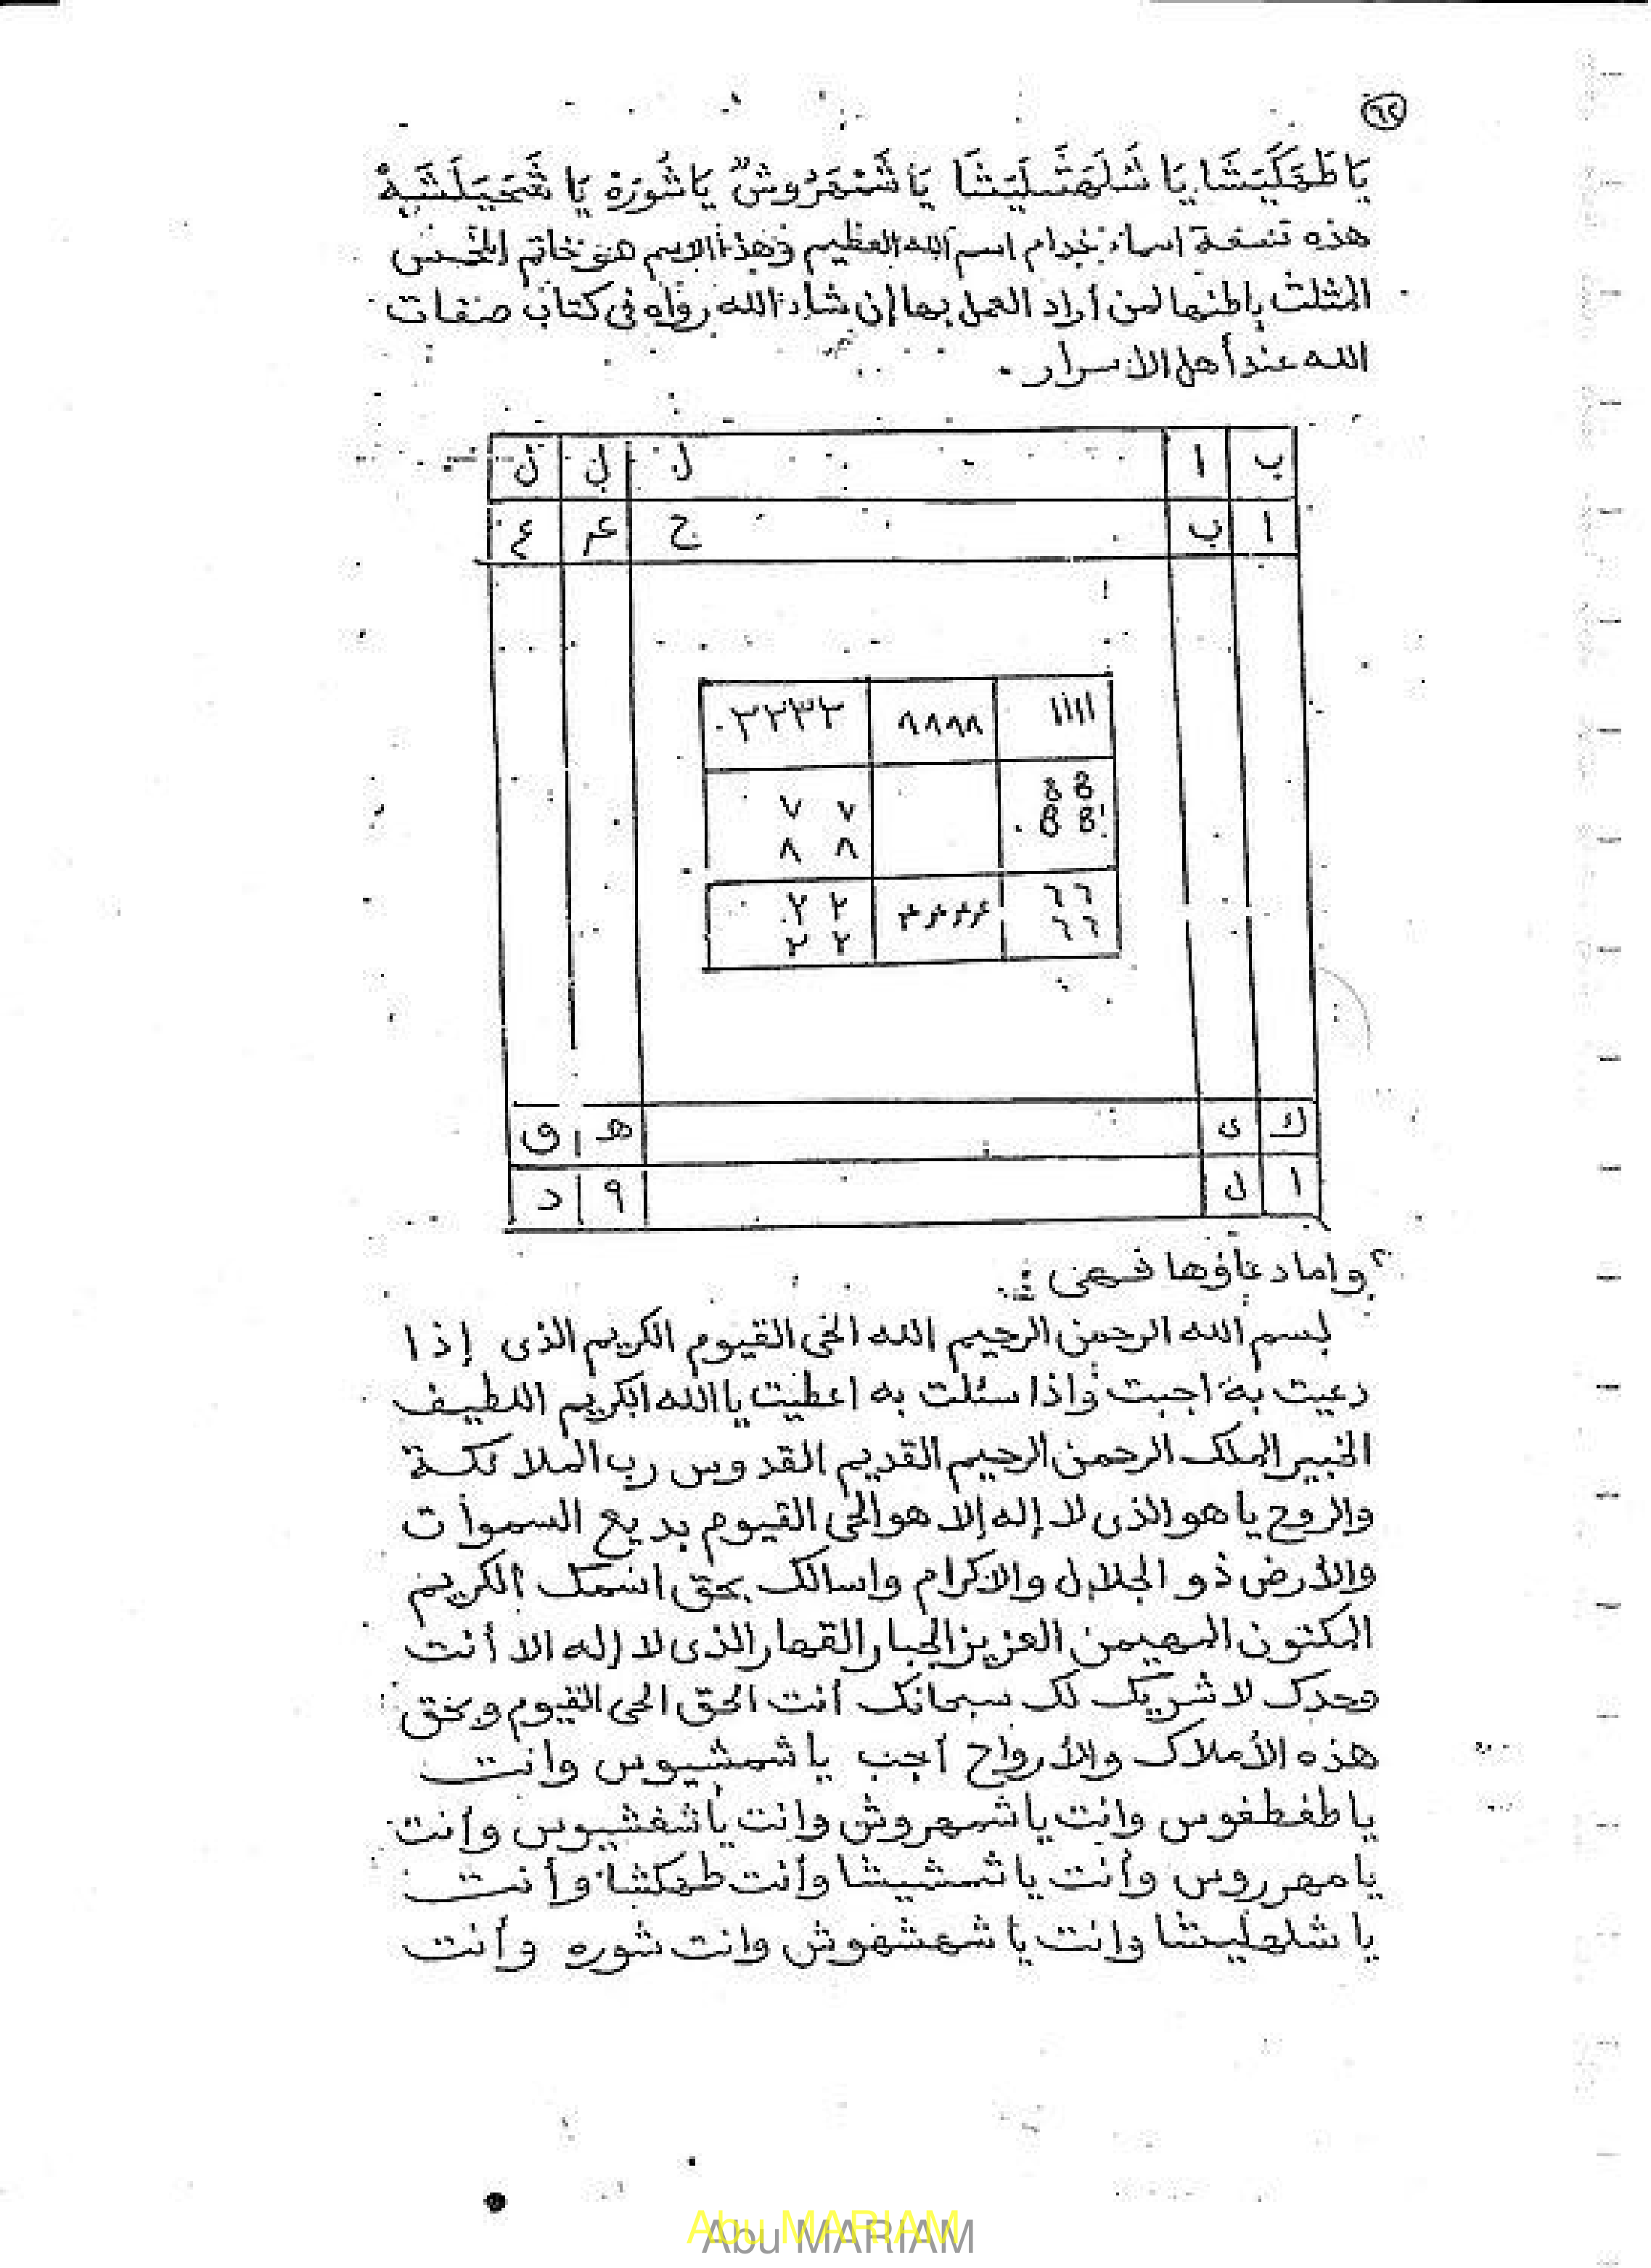 ٦٢
يَا طَهَكَيَشَا يَا شَلَهَشَلِيَشَا يَا شَمْهَرُوشٌ يَا شَوَرَهْ يَا
هذه تسعة اسماء بخدام اسم الله العظيم وهذا الاسم هو خاتم المخمس
المثلث باطنها لمن أراد العمل بها إن شاء الله رواه فى كتاب صفات
الله عند أهل الاسرار .
ب ا ل ن
ا ب ج ع
١١١١ ٨٨٨٨ ٣٣٣٣
٧ ٧
٨ ٨
٦ ٦ ٢ ٢
٦ ٦ ٢ ٢
ك ى هـ و
ا ل ٩ د
واما دعاؤها فهى :
بسم الله الرحمن الرحيم الله الحى القيوم الكريم الذى إذا
دعيت به اجبت واذا سئلت به اعطيت يا الله الكريم اللطيف
الخبير الملك الرحمن الرحيم القديم القدوس رب الملائكة
والروح يا هو الذى لا إله إلا هو الحى القيوم بديع السموات
والأرض ذو الجلال والاكرام واسالك بحق اسمك الكريم
المكنون المهيمن العزيز الجبار القهار الذى لا إله الا أنت
وحدك لا شريك لك سبحانك أنت الحق الحى القيوم وبحق
هذه الأملاك والأرواح أجب يا شمشيوس وانت
يا طفطفوس وانت يا شمهروش وانت يا شفشيوس وأنت
يا مهرروس وأنت يا شمشيشا وأنت طهكشا وأنت
يا شلهليشا وانت يا شهشهوش وانت شوره وأنت
Abu MARIAM
Abu MARIAM